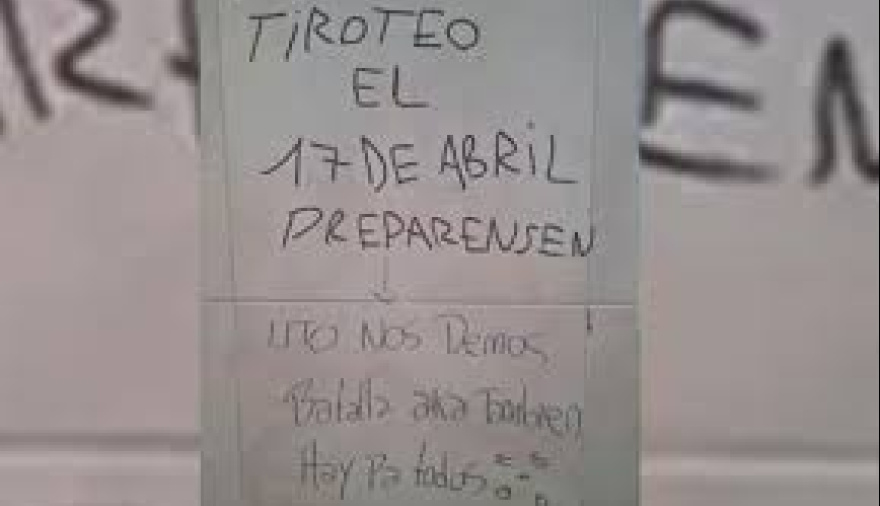 TIROTEO
EL
17 DE ABRIL
PREPARENSEN
UTO NOS Demos
Batalla aka Tambien
Hay Pa todos